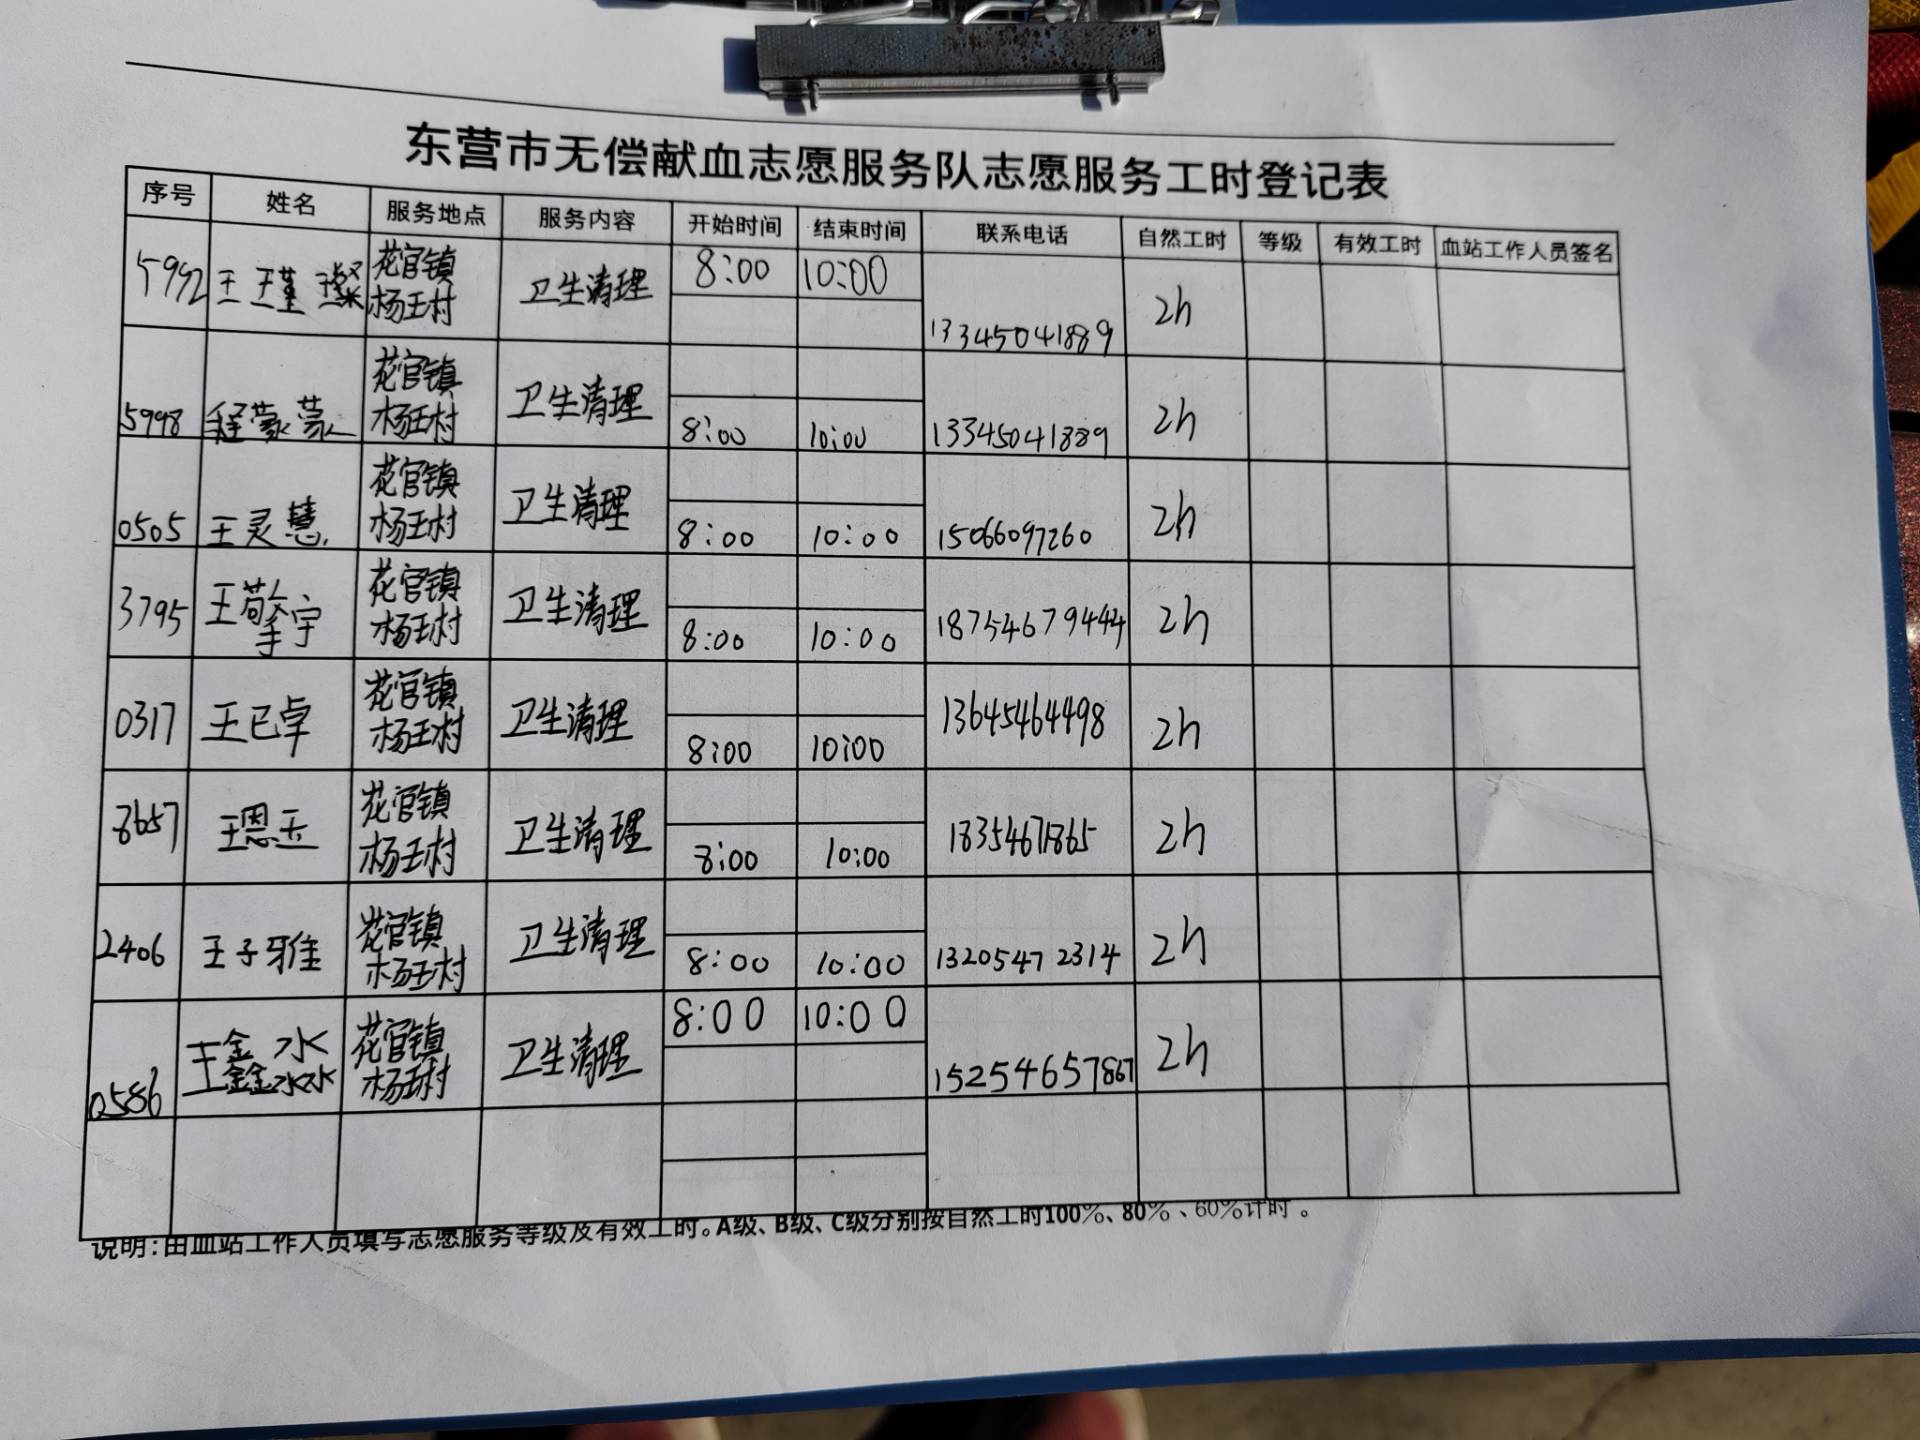 东营市无偿献血志愿服务队志愿服务工时登记表
序号 姓名 服务地点 服务内容 开始时间 结束时间 联系电话 自然工时 等级 有效工时 血站工作人员签名
王瑾璨 花官镇杨王村 卫生清理 8:00 10:00 13345041889 2h
5998 程蒙蒙 花官镇杨王村 卫生清理 8:00 10:00 13345041889 2h
0505 王灵慧 花官镇杨王村 卫生清理 8:00 10:00 15066097260 2h
3795 王擎宇 花官镇杨王村 卫生清理 8:00 10:00 18754679444 2h
0317 王已卓 花官镇杨王村 卫生清理 8:00 10:00 13645464498 2h
8657 王恩玉 花官镇杨王村 卫生清理 8:00 10:00 18354671865 2h
2406 王子雅 花官镇杨王村 卫生清理 8:00 10:00 13205472314 2h
0586 王鑫淼 花官镇杨王村 卫生清理 8:00 10:00 15254657867 2h
说明:由血站工作人员填写志愿服务等级及有效工时。A级、B级、C级分别按自然工时100%、80%、60%计时。